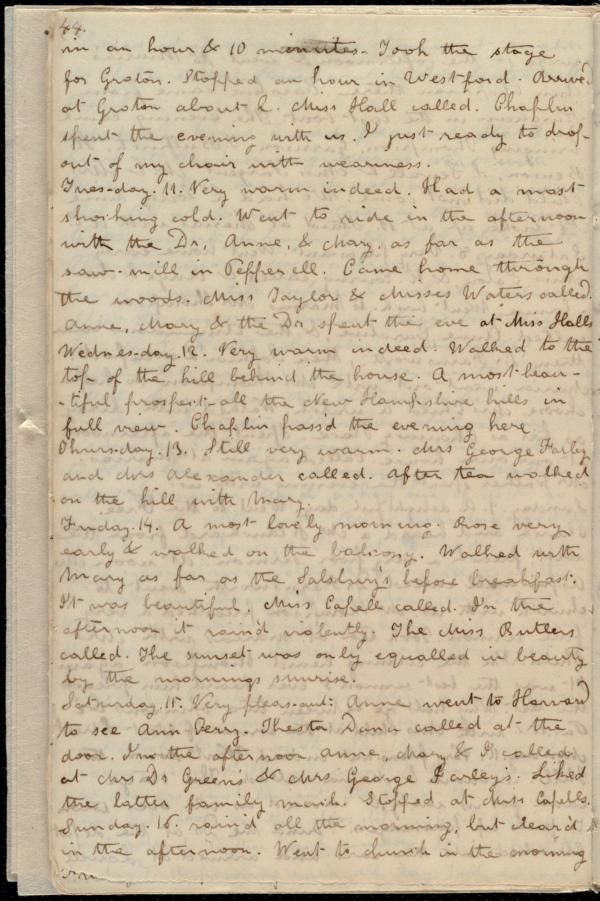 44.
in an hour & 10 minutes. Took the stage
for Groton. Stopped an hour in Westford. Arrived
at Groton about 2. Miss Hall called. Chaplin
spent the evening with us. I just ready to drop
out of my chair with weariness.
Tues-day. 11. Very warm indeed. Had a most
shocking cold. Went to ride in the afternoon
with the Dr, Anne, & Mary, as far as the
saw-mill in Pepperell. Came home through
the woods. Miss Taylor & Misses Waters called.
Anne, Mary & the Dr spent the eve at Miss Halls
Wednes-day. 12. Very warm indeed. Walked to the
top of the hill behind the house. A most beau-
-tiful prospect- all the New Hampshire hills in
full view. Chaplin pass'd the evening here
Thurs-day. 13. Still very warm. Mrs George Farley
and Mrs Alexander called. After tea walked
on the hill with Mary.
Friday. 14. A most lovely morning. Rose very
early & walked on the balcony. Walked with
Mary as far as the Salsbury's before breakfast.
It was beautiful. Miss Capell called. In the
afternoon it rain'd violently. The Miss Butlers
called. The sunset was only equalled in beauty
by the mornings sunrise.
Saturday. 15. Very pleas-ant. Anne went to Harvard
to see Ann Perry. Dana called at the
door. In the afternoon Anne, Mary & I called
at Mrs Dr Green's & Mrs George Farley's. Liked
the latter family much. Stopped at Miss Capells.
Sunday. 16. rain'd all the morning, but clear'd
in the afternoon. Went to church in the morning